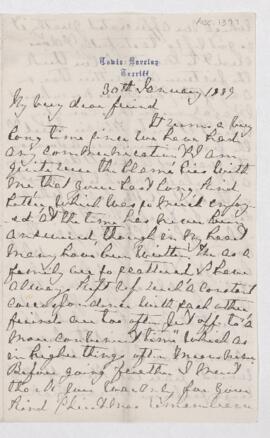 Towie Barclay
Turriff
30th January 1889
My very dear friend
It seems a very
long time since we have had
any communication & I am
quite sure the blame lies with
me that your last long kind
letter which was so much enjoy
ed at the time has never been
answered, though in my heart
many have been written. We as a
family are so scattered & have
always kept up such a constant
correspondence with each other
friends are too often put off to "a
more convenient time" which as
in higher things often never comes
Before going further I must
thank you warmly for your
kind Christmas remembrance